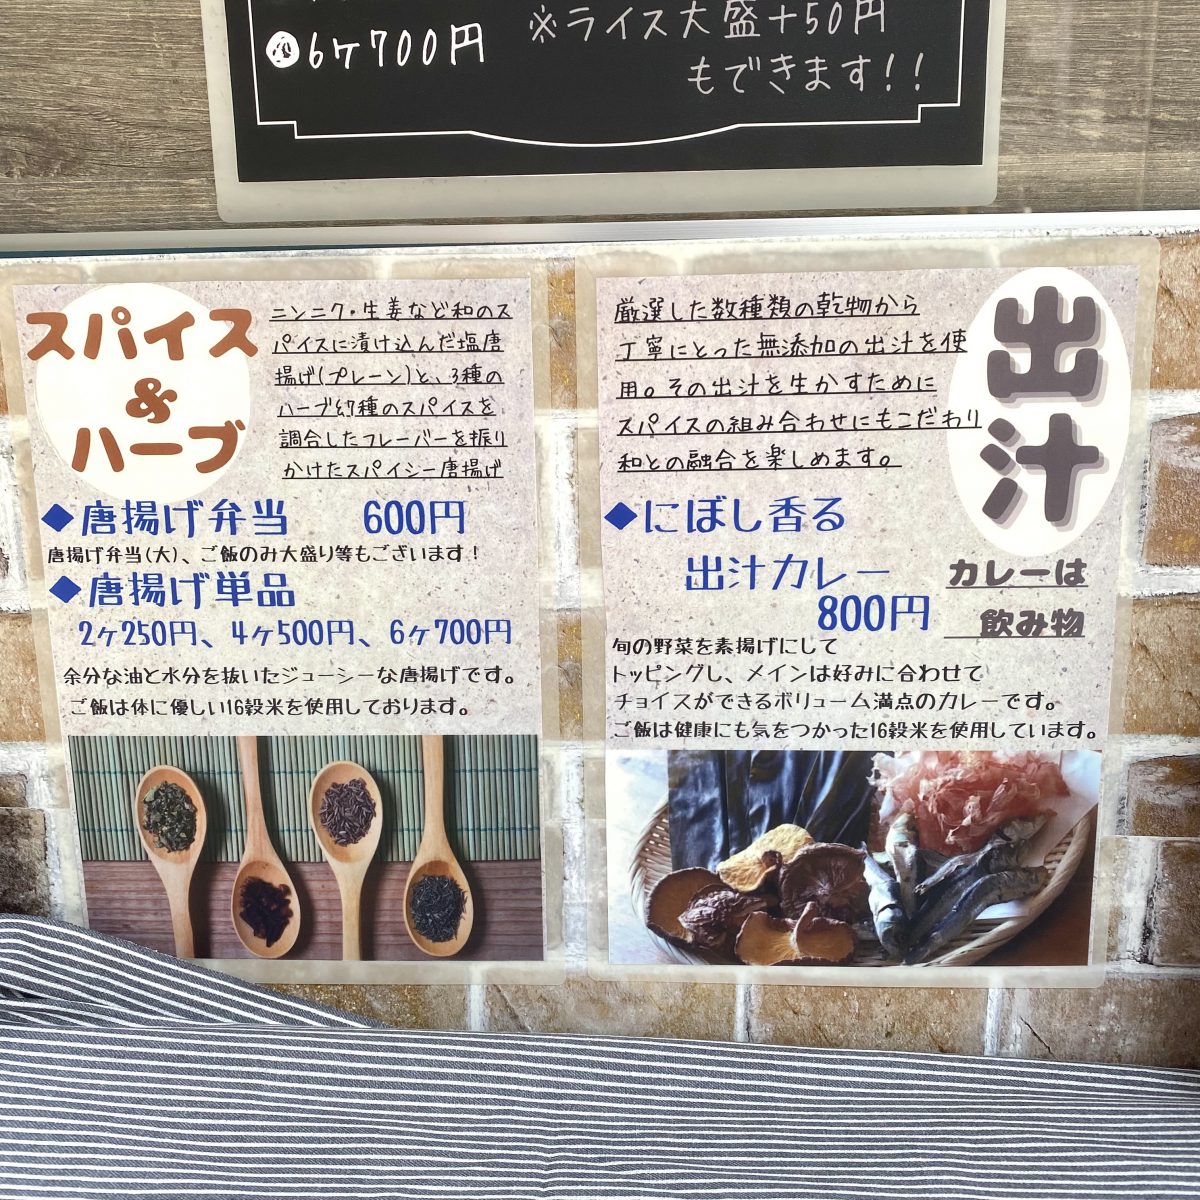 6ヶ700円
※ライス大盛+50円
もできます!!
スパイス
&
ハーブ
ニンニク・生姜など和のス
パイスに漬け込んだ塩唐
揚げ(プレーン)と、3種の
ハーブと7種のスパイスを
調合したフレーバーを振り
かけたスパイシー唐揚げ
◆唐揚げ弁当 600円
唐揚げ弁当(大)、ご飯のみ大盛り等もございます!
◆唐揚げ単品
2ヶ250円、4ヶ500円、6ヶ700円
余分な油と水分を抜いたジューシーな唐揚げです。
ご飯は体に優しい16穀米を使用しております。
出汁
厳選した数種類の乾物から
丁寧にとった無添加の出汁を使
用。その出汁を生かすために
スパイスの組み合わせにもこだわり
和との融合を楽しめます。
◆にぼし香る
出汁カレー
800円
カレーは
飲み物
旬の野菜を素揚げにして
トッピングし、メインは好みに合わせて
チョイスができるボリューム満点のカレーです。
ご飯は健康にも気をつかった16穀米を使用しています。